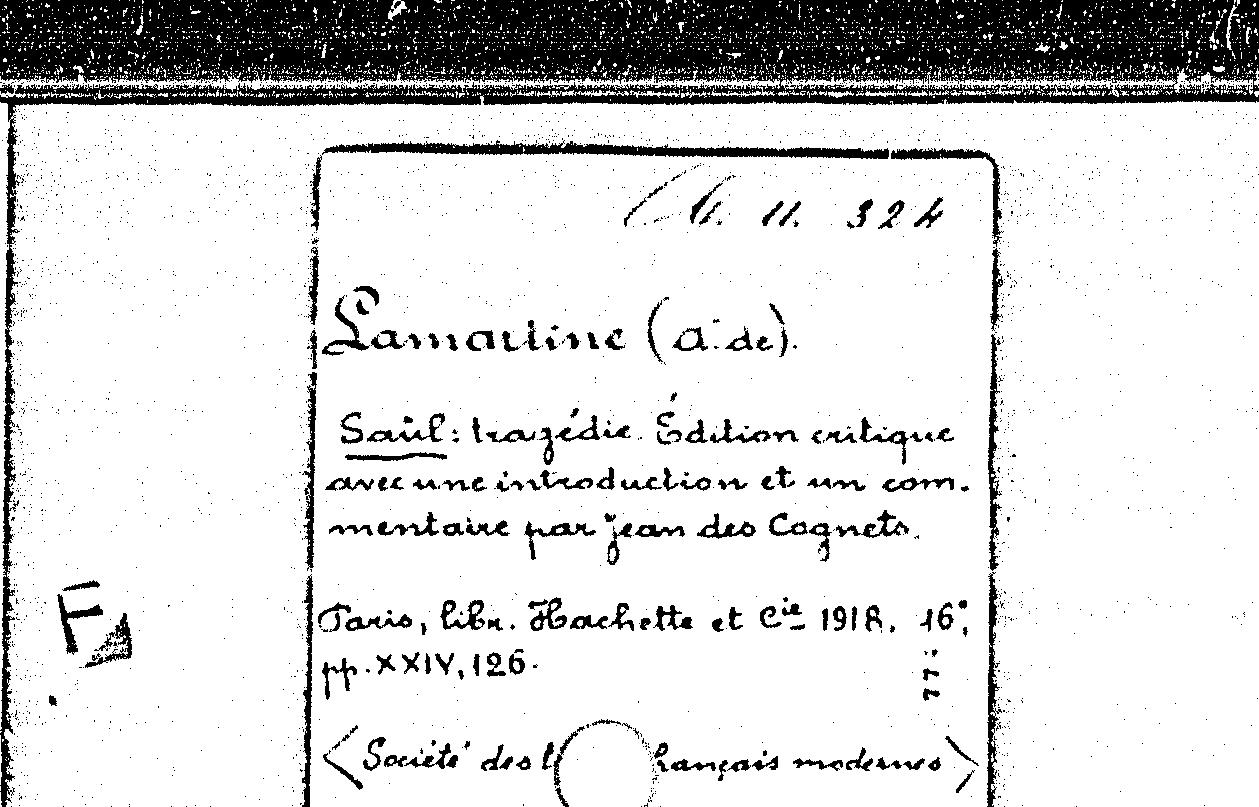 11. 324
Lamartine (A. de).
Saül: tragédie. Édition critique
avec une introduction et un com-
mentaire par Jean des Cognets.
Paris, libr. Hachette et Cie 1918. 16°,
pp. XXIV, 126.
77.
F
<Société des français modernes>